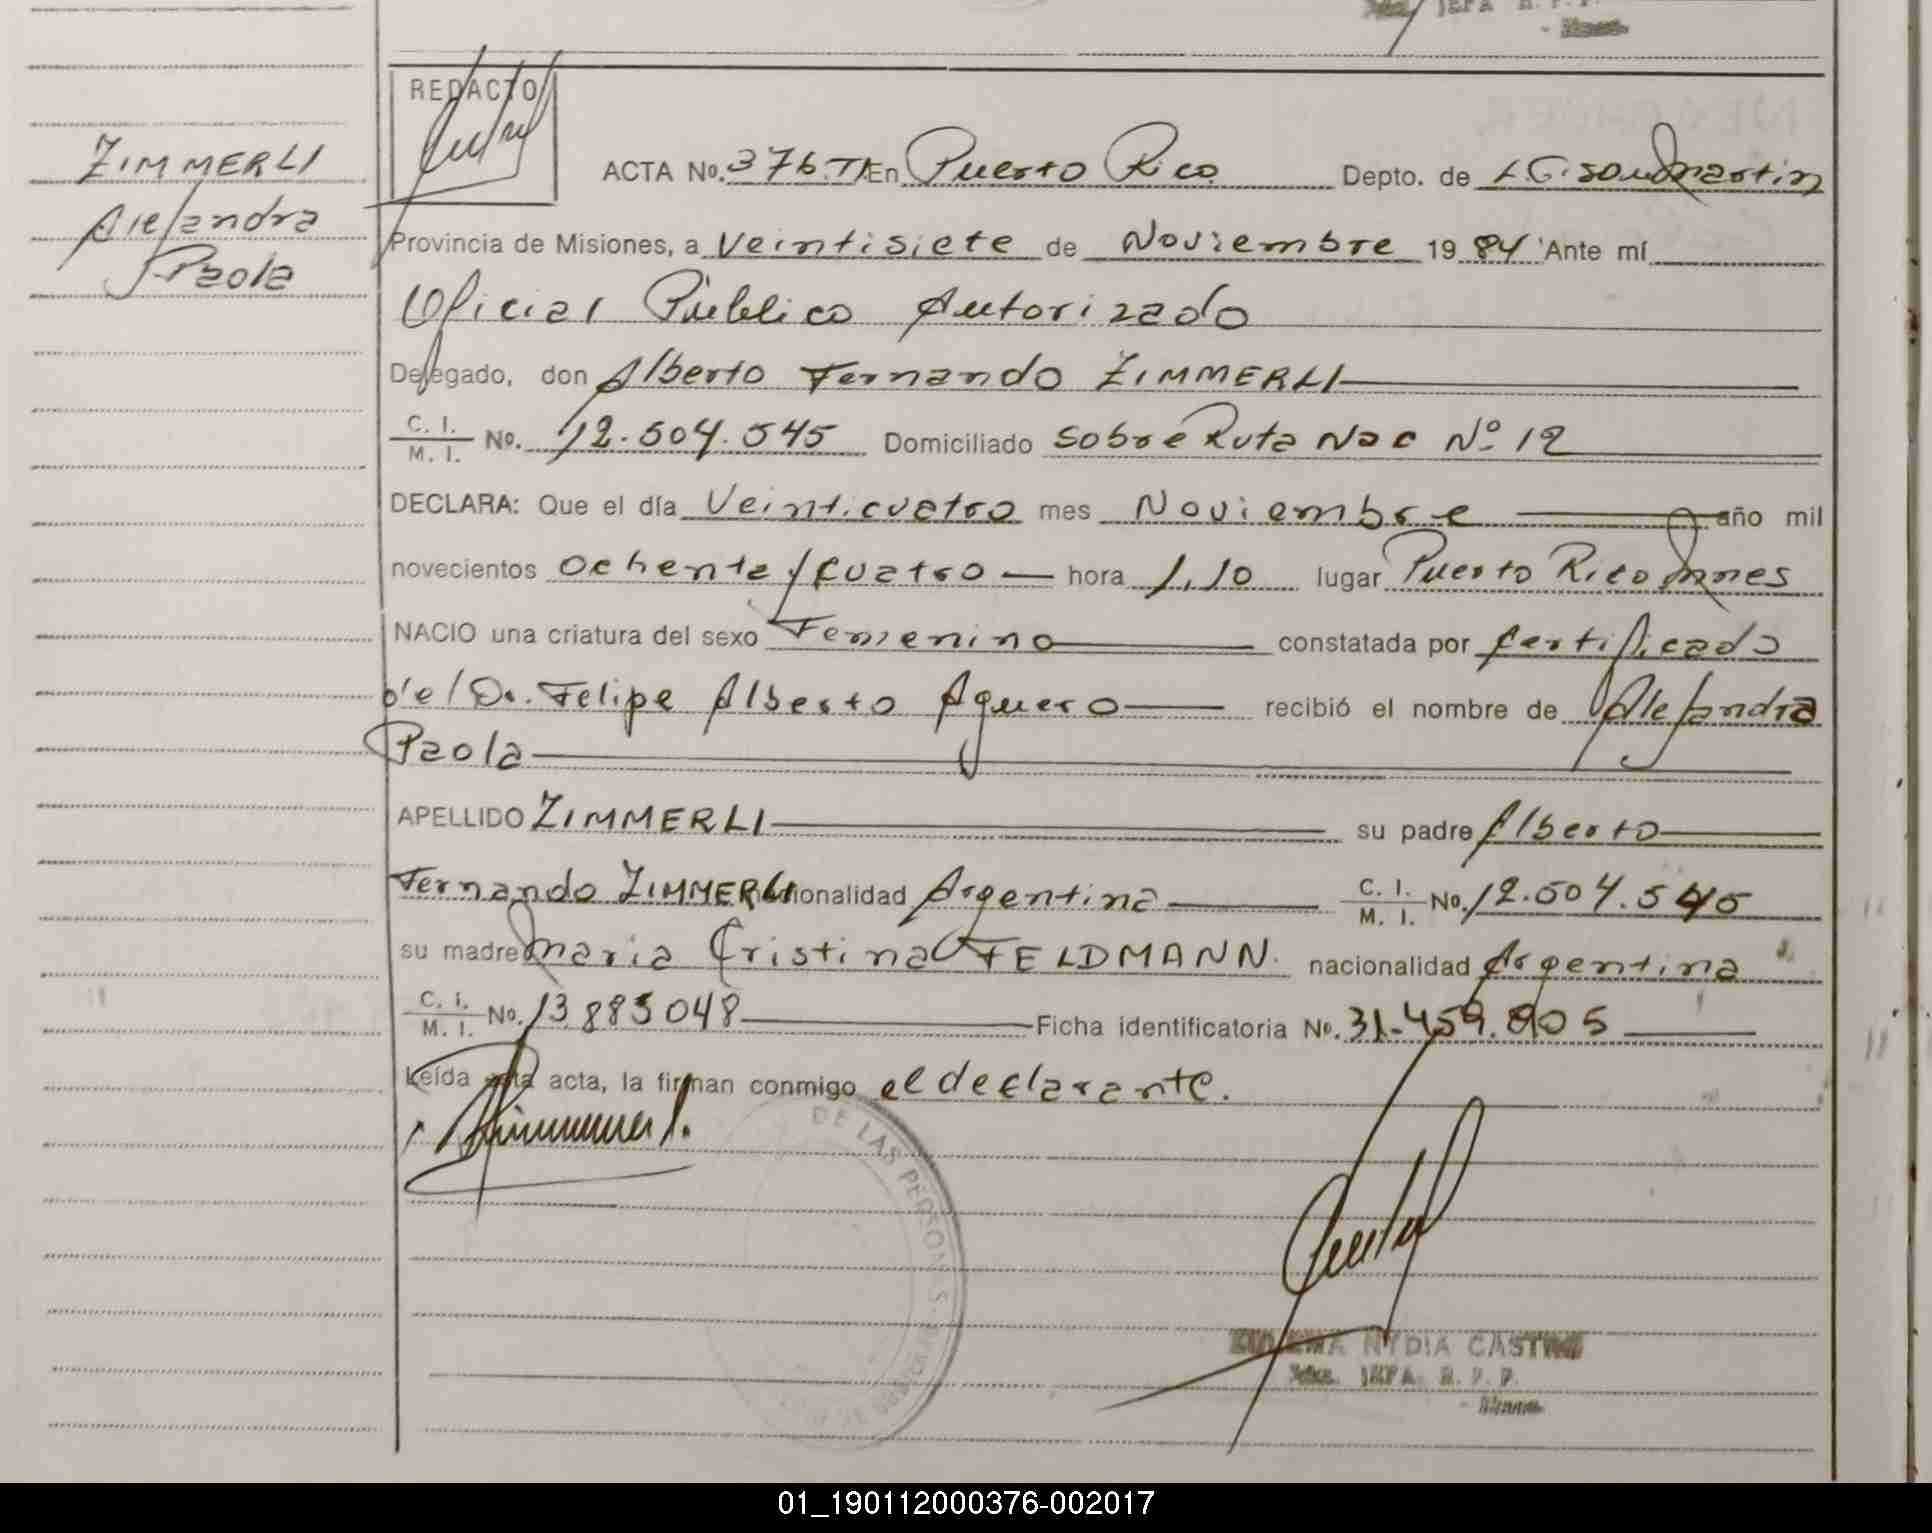 ZIMMERLI
Alejandra
Paola
REDACTO
ACTA No. 376.TI En Puerto Rico Depto. de LG. San Martin
Provincia de Misiones, a Veintisiete de Noviembre 19 84 Ante mí
Oficial Público Autorizado
Delegado, don Alberto Fernando ZIMMERLI
C. I.
M. I. No. 12.504.545 Domiciliado Sobre Ruta Nac Nº 12
DECLARA: Que el día Veinticuatro mes Noviembre año mil
novecientos Ochenta y Cuatro hora 1,10 lugar Puerto Rico Mnes
NACIO una criatura del sexo Femenino constatada por Certificado
del Dr. Felipe Alberto Aguero recibió el nombre de Alejandra
Paola
APELLIDO ZIMMERLI su padre Alberto
Fernando ZIMMERLI nacionalidad Argentina C. I.
M. I. No. 12.504.545
su madre Maria Cristina FELDMANN. nacionalidad Argentina
C. I.
M. I. No. 13.885048 Ficha identificatoria No. 31.459.805
Leída esta acta, la firman conmigo el declarante.
DE LAS PERSONAS
NYDIA CASTRO
JEFA R. P. P.
01_190112000376-002017